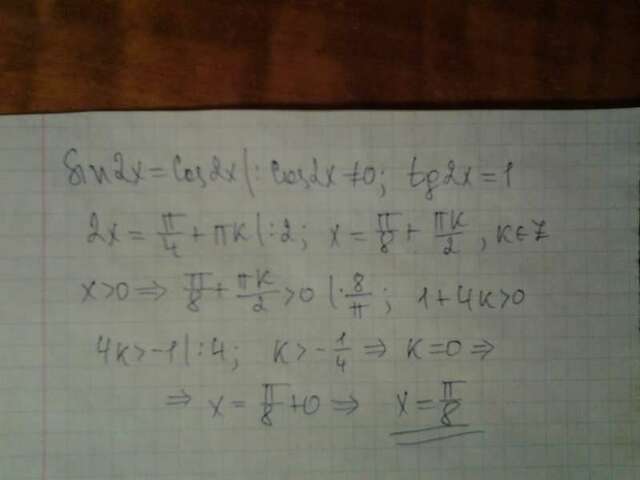 Sin2x = Cos2x |: Cos2x ≠ 0; tg2x = 1
2x = π/4 + πk |: 2; x = π/8 + πk/2, k∈Z
x>0 ⇒ π/8 + πk/2 > 0 |· 8/π; 1+4k>0
4k > -1 |: 4; k > -1/4 ⇒ k=0 ⇒
⇒ x = π/8 + 0 ⇒ x = π/8